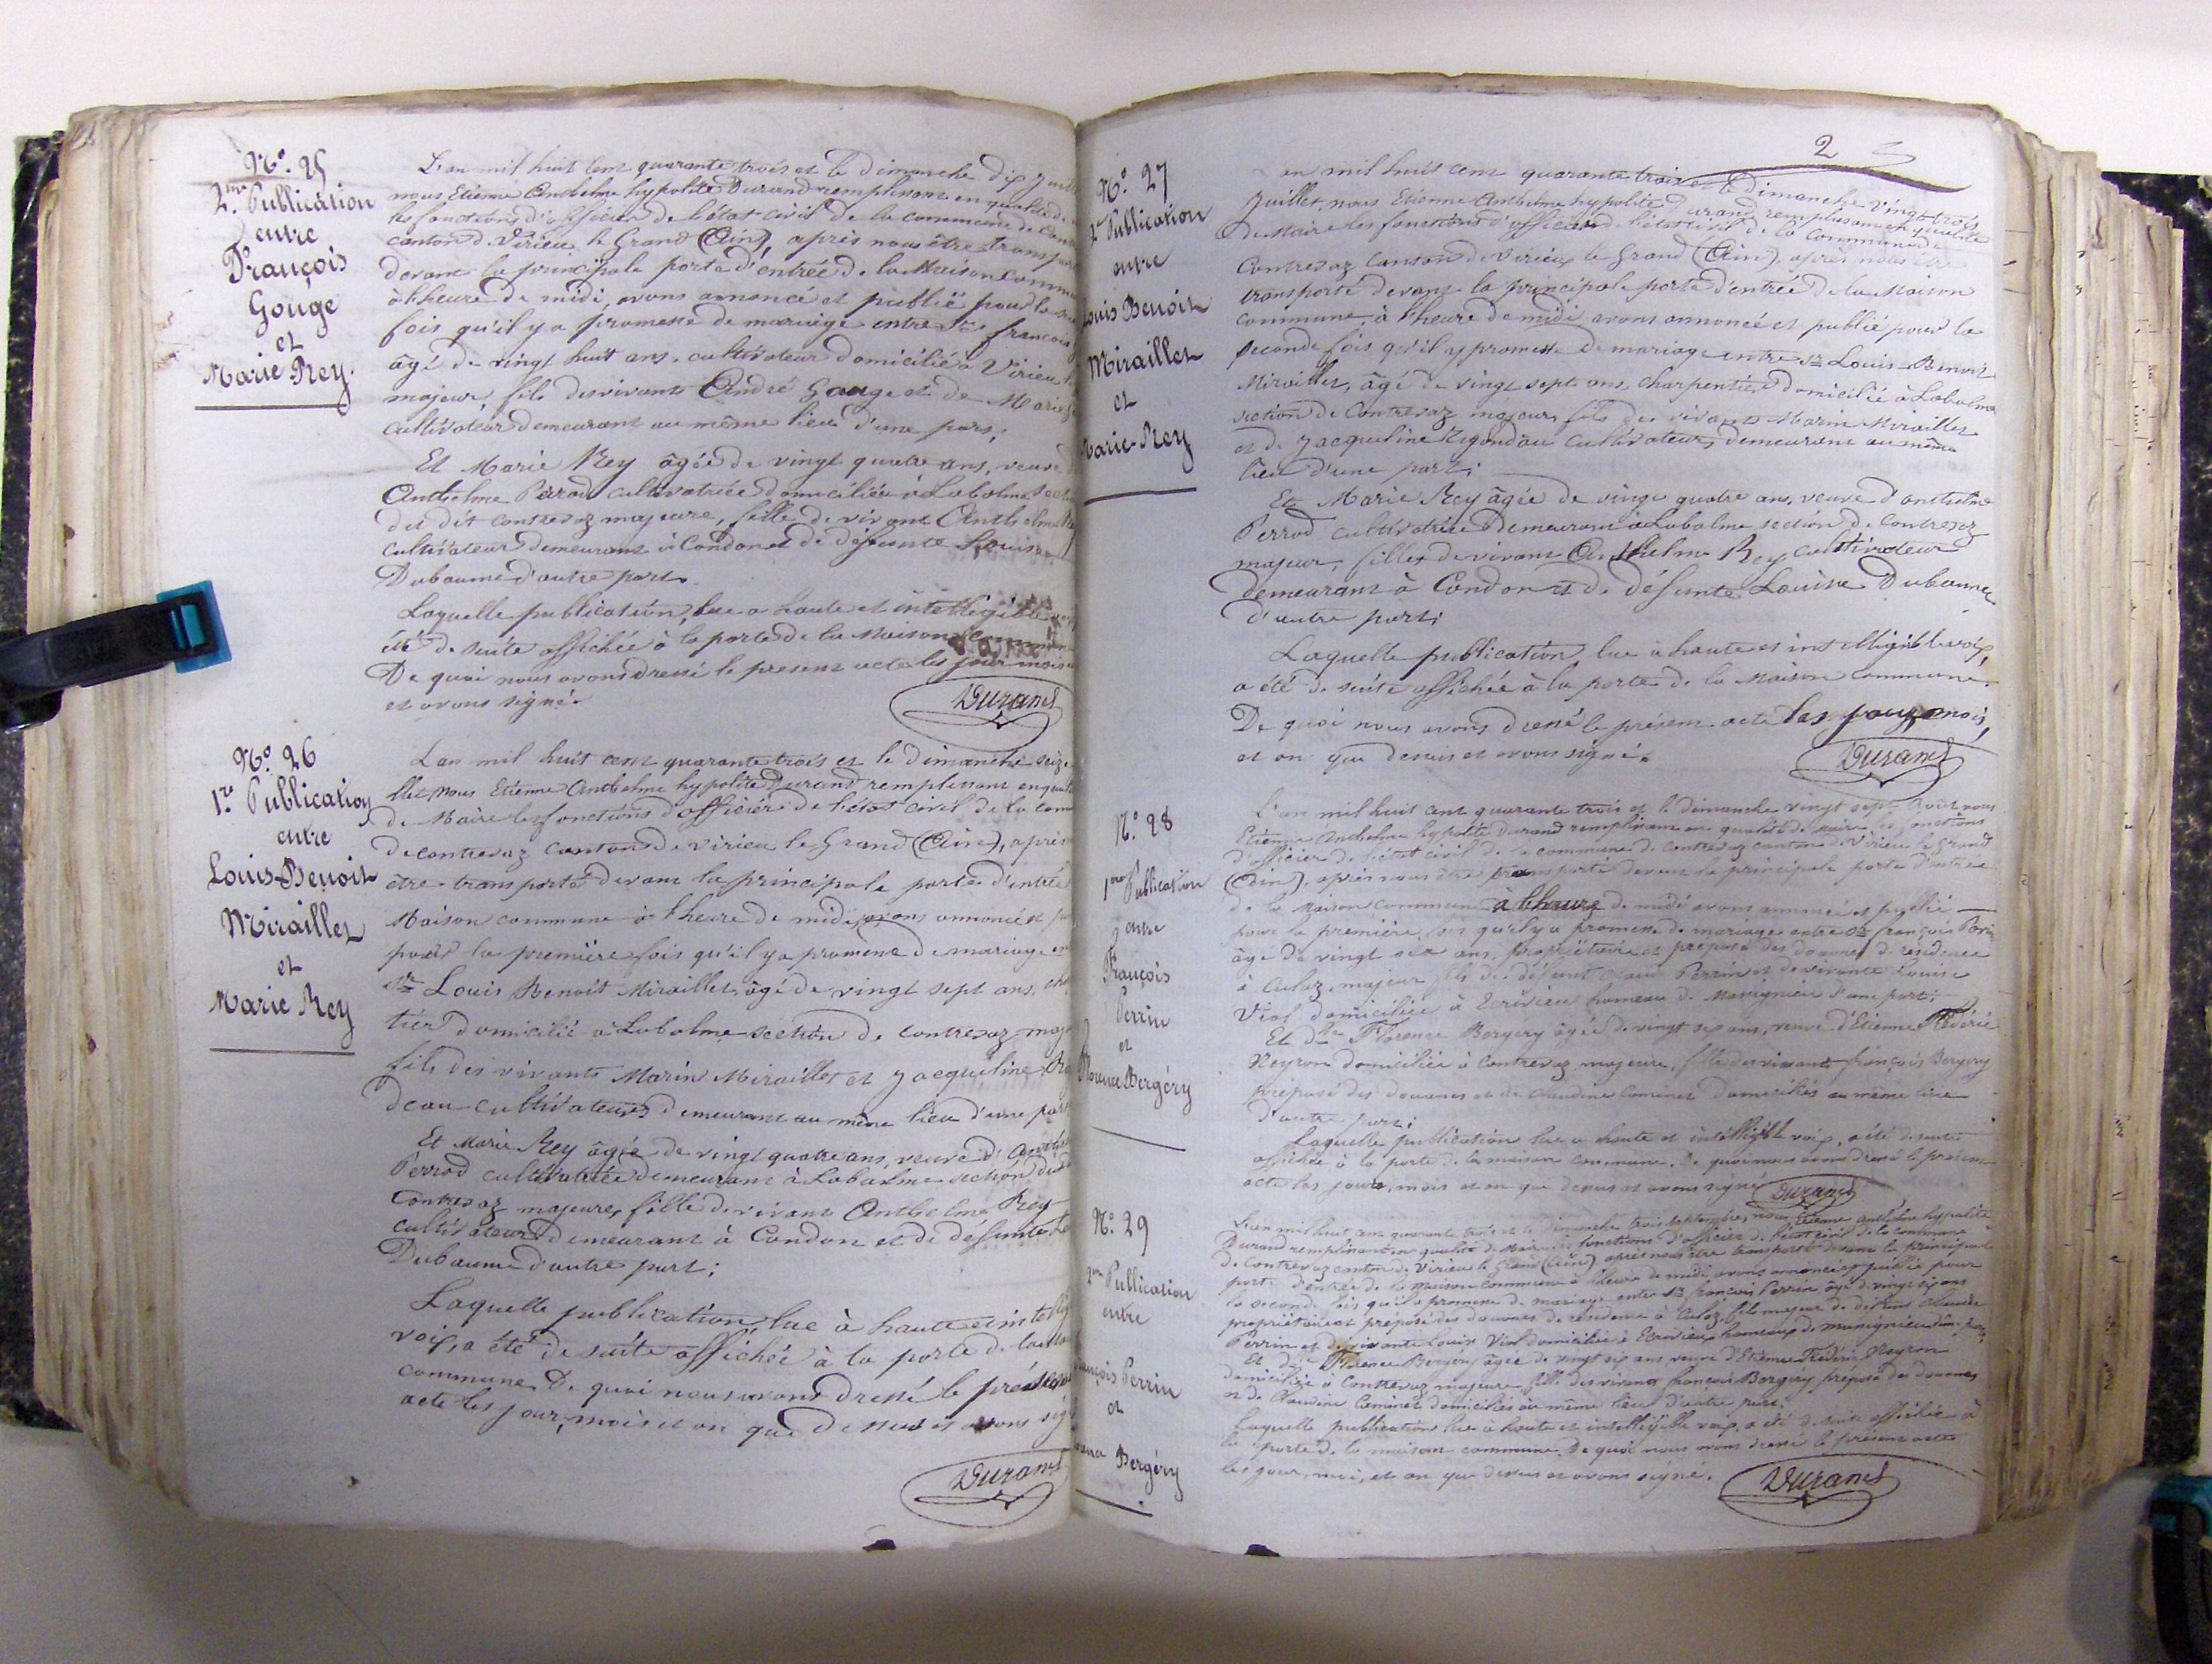 No. 25
2.me Publication
entre
François
Gouge
et
Marie Rey.
L'an mil huit cent quarante trois et le dimanche dix
nous Etienne Anthelme hypolite Durand remplissant en qualité de
les fonctions d'officier de l'état civil de la commune de
canton de Virieu le Grand (Ain), après nous être
devant la principale porte d'entrée de la Maison
à l'heure de midi, avons annoncé et publié pour la
fois qu'il y a promesse de mariage entre Sr. francois
âgé de vingt huit ans, cultivateur domicilié à Virieu
majeur, fils des vivants André Gouge et de Marie
cultivateurs demeurant au même lieu d'une part;
Et Marie Rey âgée de vingt quatre ans, veuve
Anthelme Perrod cultivatrice domiciliée à Labalme
du dit contrevoz majeure, fille de vivant Anthelme
cultivateur demeurant à Condon et de défunte Louise
Dubaume d'autre part.
Laquelle publication, lue a haute et intelligible
été de suite affichée à la porte de la Maison
De quoi nous avons dressé le present acte les jour mois
et avons signé.
Durand
No. 26
1.re Publication
entre
Louis-Benoit
Miraillet
et
Marie Rey
L'an mil huit cent quarante trois et le dimanche seize
llet, nous Etienne Anthelme hypolite Durand remplissant en
de Maire les fonctions d'officier de l'état civil de la
de contrevoz canton de virieu le Grand (Ain), après
être transporté devant la principale porte d'entrée
Maison commune à l'heure de midi, avons annoncé et
pour la première fois qu'il y a promesse de mariage
Sr Louis Benoit Miraillet, âgé de vingt sept ans,
tier domicilié à Labalme section de contrevoz
fils des vivants Marin Miraillet et Jacqueline
deau cultivateurs demeurant au même lieu d'une part
Et Marie Rey âgée de vingt quatre ans, veuve d'
Perrod cultivatrice demeurant à Labalme section
Contrevoz majeure, fille de vivant Anthelme Rey
cultivateur demeurant à Condon et de défunte
Dubaume d'autre part;
Laquelle publication, lue à haute et
voix, a été de suite affichée à la porte de
commune. De quoi nous avons dressé le présent
acte les jour, mois et an que dessus et avons
Durand
2
No. 27
2e Publication
entre
Louis Benoit
Miraillet
et
Marie-Rey
an mil huit cent quarante trois et le dimanche vingt trois
Juillet, nous Etienne Anthelme hypolite Durand remplissant en qualité
de Maire les fonctions d'officier de l'état civil de la commune de
Contrevoz canton de virieu le Grand (Ain), après nous être
transporté devant la principale porte d'entrée de la Maison
commune, à l'heure de midi avons annoncé et publié pour la
seconde fois qu'il y promesse de mariage entre Sr Louis-Benoit
Miraillet, âgé de vingt sept ans, charpentier domicilié à Labalme
section de Contrevoz majeur, fils des vivants Marin Miraillet
et de Jacqueline Rigondau cultivateurs, demeurant au même
lieu d'une part;
Et Marie Rey âgée de vingt quatre ans, veuve d'anthelme
Perrod cultivatrice demeurant à Labalme section de contrevoz
majeur, fille de vivant Anthelme Rey cultivateur
demeurant à Condon et de défunte Louise Dubaume
d'autre part;
Laquelle publication lue à haute et intelligible voix,
a été de suite affichée à la porte de la Maison commune.
De quoi nous avons dressé le présent acte les jour, mois,
et an que dessus et avons signé.
Durand
No. 28
1.re Publication
entre
François
Perrin
et
Florence Bergéry
L'an mil huit cent quarante trois et le dimanche vingt sept Août nous
Etienne Anthelme hypolite Durand remplissant en qualité de maire les fonctions
d'officier de l'état civil de la commune de contrevoz canton de Virieu le Grand
(Ain), après nous être transporté devant la principale porte d'entrée
de la Maison commune à l'heure de midi avons annoncé et publié
pour la première fois qu'il y a promesse de mariage entre Sr françois
âgé de vingt six ans, propriétaire et préposé des douanes de résidence
à Culoz, majeur fils de défunt Perrin et de vivante Louise
Viol domiciliée à Ecrivieu hameau de Marignieu d'une part;
Et Dlle Florence Bergery âgée de vingt six ans, veuve d'Etienne Frédéric
Neyron domiciliée à Contrevoz majeure, fille des vivants françois Bergery
préposé des douanes et de Claudine Cominet domiciliés au même lieu
d'autre part;
Laquelle publication lue à haute et intelligible voix, a été de suite
affichée à la porte de la maison commune. De quoi nous avons dressé le présent
acte les jour, mois et an que dessus et avons signé
Durand
No. 29
2.me Publication
entre
françois Perrin
et
Bergéry
L'an mil huit cent quarante trois et le dimanche trois Septembre, nous Etienne anthelme hypolite
Durand remplissant en qualité de Maire les fonctions d'officier de l'état civil de la commune
de Contrevoz canton de Virieu le Grand (Ain) après nous être transporté devant la principale
porte d'entrée de la Maison Commune à l'heure de midi avons annoncé et publié pour
la seconde fois qu'il a promesse de mariage entre Sr françois Perrin âgé de vingt six ans
propriétaire et préposé des douanes de résidence à Culoz, fils majeur de défunt Claude
Perrin et de vivante Louise Viol domiciliée à Ecrivieu hameau de Marignieu d'une part,
Et Dlle Florence Bergéry âgée de vingt six ans veuve d'Etienne Frédéric Neyron
domiciliée à Contrevoz majeure, fille des vivants françois Bergery préposé des douanes
et de Claudine Cominet domiciliés au même lieu d'autre part;
Laquelle publication lue à haute et intelligible voix, a été de suite affichée à
la porte de la maison commune. De quoi nous avons dressé le présent acte
les jour, mois, et an que dessus et avons signé.
Durand